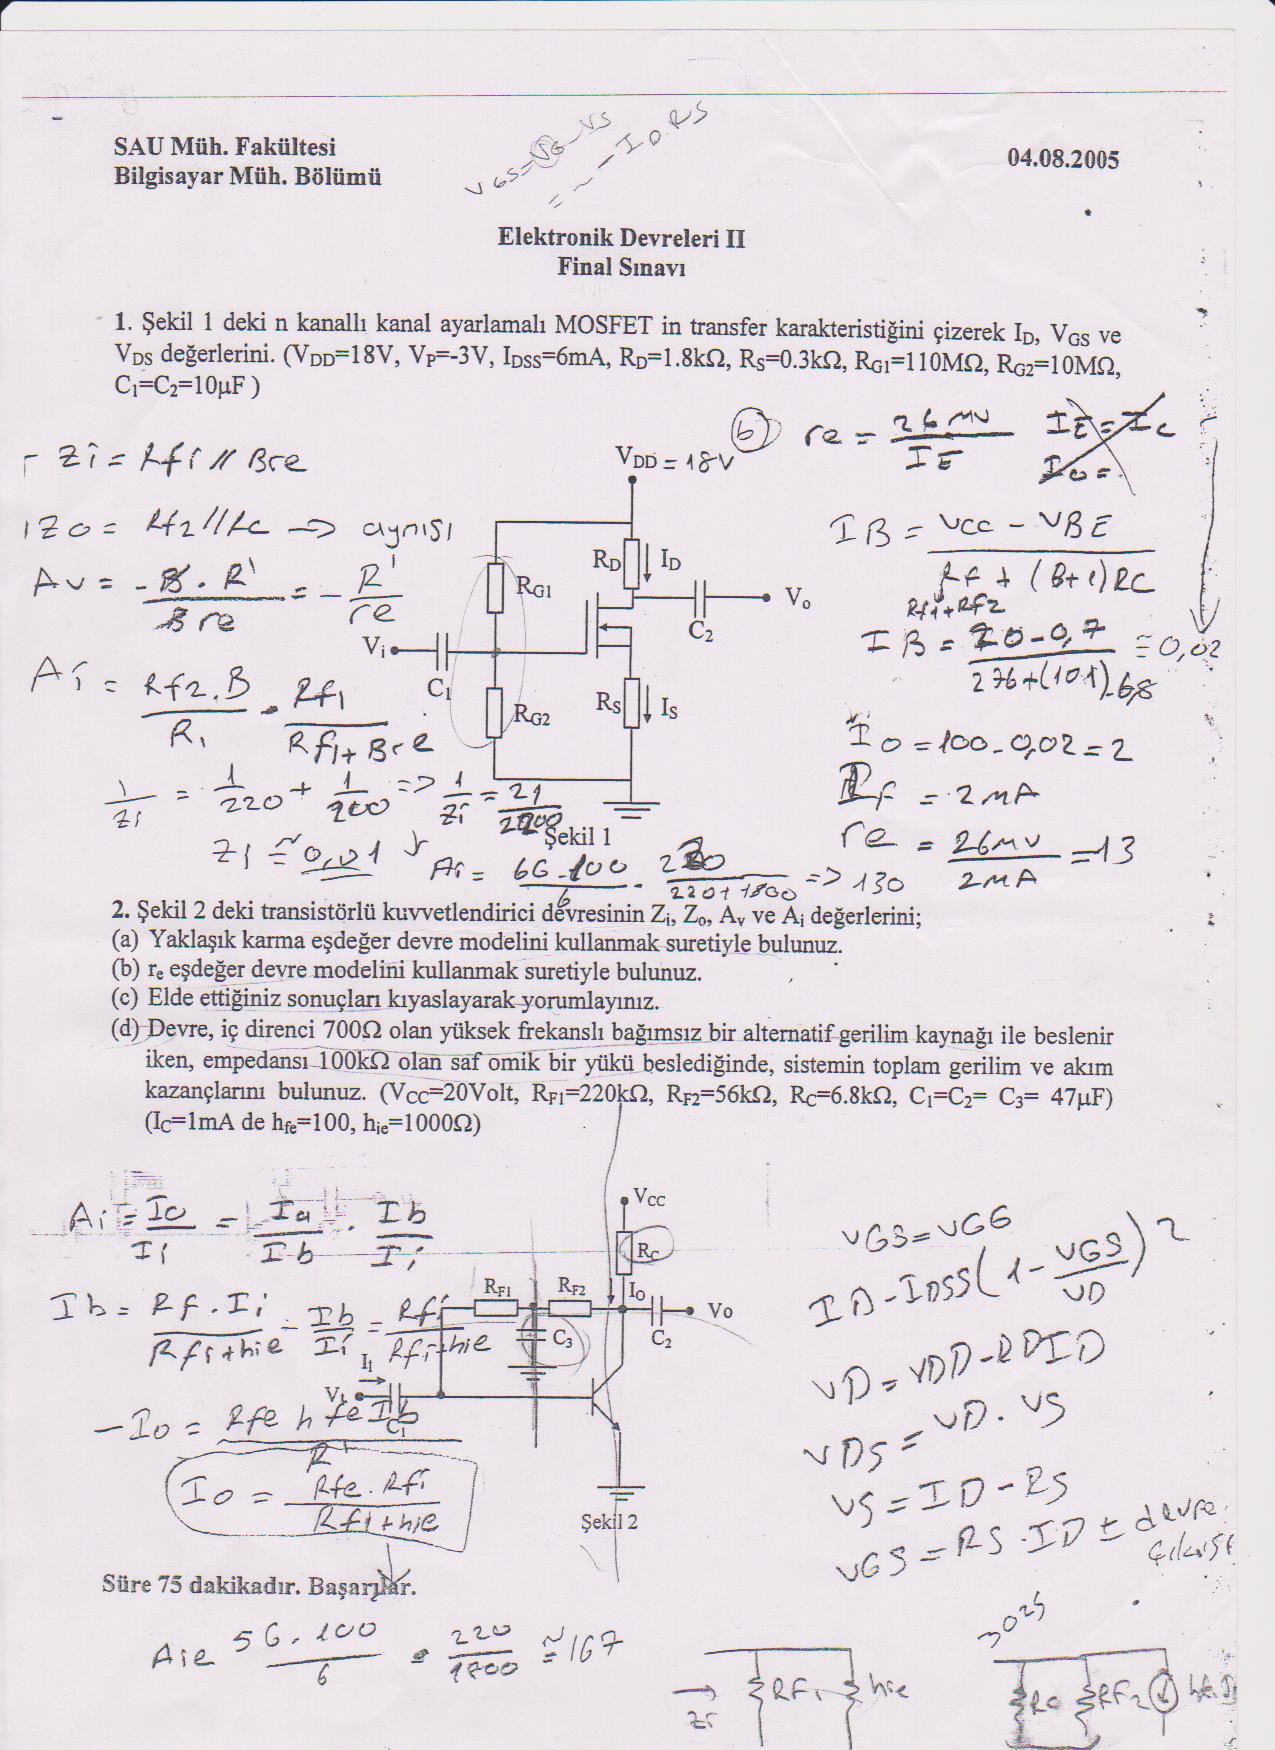 VGS = VG - VS
= ~ - ID.RS
SAU Müh. Fakültesi
04.08.2005
Bilgisayar Müh. Bölümü
Elektronik Devreleri II
Final Sınavı
1. Şekil 1 deki n kanallı kanal ayarlamalı MOSFET in transfer karakteristiğini çizerek ID, VGS ve
VDS değerlerini. (VDD=18V, VP=-3V, IDSS=6mA, RD=1.8kΩ, RS=0.3kΩ, RG1=110MΩ, RG2=10MΩ,
C1=C2=10µF )
Zi = Rf1 // Bre
Zo = Rf2 // Rc → aynısı
Av = -B.R' / Bre = - R' / re
Ai = Rf2.B / R1 . Rf1 / Rf1+Bre
1/Zi = 1/220 + 1/200 => 1/Zi = 21/2200
Zi ≅ 0,01
Ai = 66.100 / 6 . 220 / 220+1800 => 130
VDD = 18V
RD
ID
RG1
Vo
C2
Vi
C1
RG2
RS
IS
Şekil 1
b) re = 26 mV / IE
IE = IC
Io =
IB = VCC - VBE / RF + (B+1)RC
Rf1+Rf2
IB = 20-0,7 / 276+(101).6,8 ≅ 0,02
Io = 100.0,02 = 2
= 2mA
re = 26mV / 2mA = 13
2. Şekil 2 deki transistörlü kuvvetlendirici devresinin Zi, Zo, Av ve Ai değerlerini;
(a) Yaklaşık karma eşdeğer devre modelini kullanmak suretiyle bulunuz.
(b) re eşdeğer devre modelini kullanmak suretiyle bulunuz.
(c) Elde ettiğiniz sonuçları kıyaslayarak yorumlayınız.
(d) Devre, iç direnci 700Ω olan yüksek frekanslı bağımsız bir alternatif gerilim kaynağı ile beslenir
iken, empedansı 100kΩ olan saf omik bir yükü beslediğinde, sistemin toplam gerilim ve akım
kazançlarını bulunuz. (VCC=20Volt, RF1=220kΩ, RF2=56kΩ, RC=6.8kΩ, C1=C2= C3= 47µF)
(IC=1mA de hfe=100, hie=1000Ω)
Ai = Io / Ii = Io / Ib . Ib / Ii
Ib = Rf.Ii / Rfi+hie - Ib / Ii = Rfi / Rfi+hie
-Io = Rfe hfe Ib / R'
Io = Rfe.Rfi / Rf1+hie
VCC
RC
RF1
RF2
IO
Vo
C3
C2
I1
Vi
C1
Şekil 2
VGS = VGG
ID - IDSS(1 - VGS / VD)2
VD = VDD - RDID
VDS = VD.VS
VS = ID - RS
VGS = RS.ID ± devre
çıkışı
Süre 75 dakikadır. Başarılar.
Aie 56.100 / 6 . 220 / 1800 ≅ 167
Zi
RF1
hie
RC
RF2